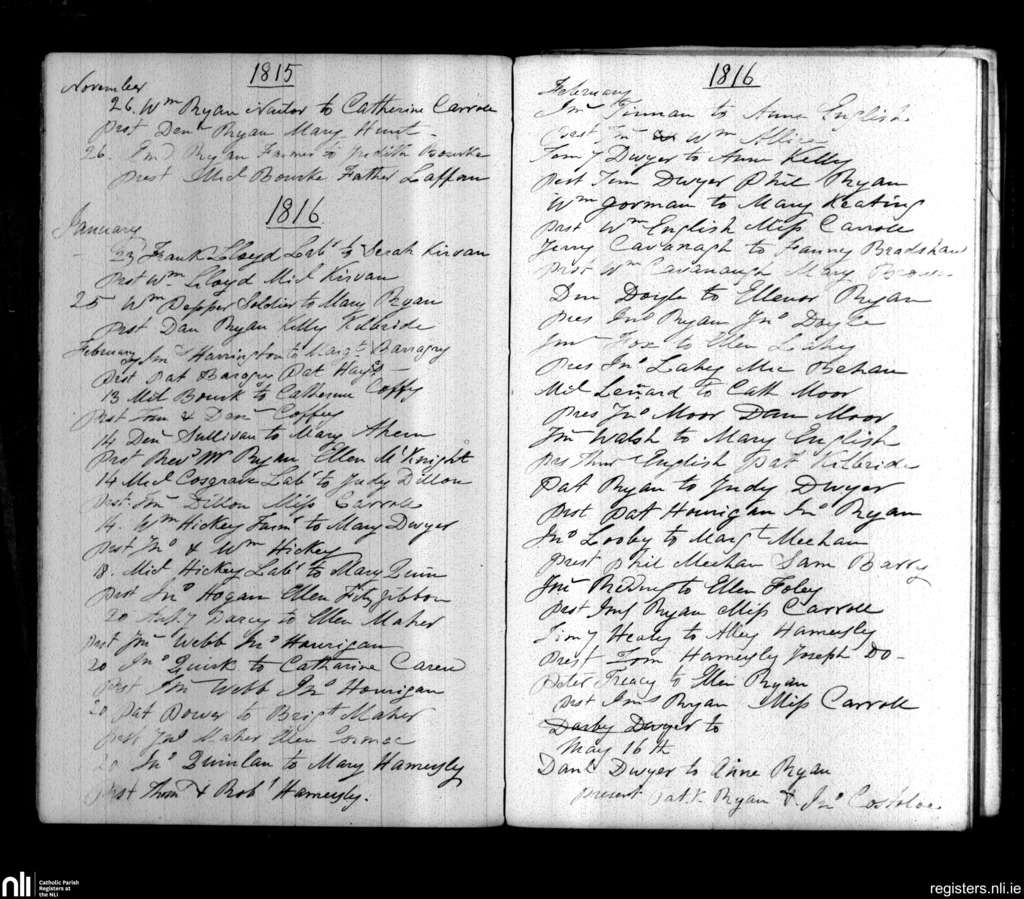 1815
November
26. Wm Ryan Nailor to Catherine Carroll
Prst Denn Ryan Mary Hunt -
26. Ryan Farmer to Judith Bourke
prest Micl Bourke Father Laffan
1816
January
23 Frank Lloyd Labr to Sarah Kirvan
Prst Wm Lloyd Micl Kirvan
25 Wm Pepper Soldier to Mary Ryan
Prst Dan Ryan Kelly Kilbride
February Harrington to Margt Barragry
Prst Pat Baragry Pat Hayst
13 Micl Bourk to Catherine Coffy
Prst Tom & Denn Coffey
14 Denn Sullivan to Mary Ahern
Prst Revd Mr Ryan Ellen McKnight
14 Micl Cosgrave Labr to Judy Dillon
Prst Jms Dillon Miss Carroll
14. Wm Hickey Farmr to Mary Dwyer
Prst Jno & Wm Hickey
18. Micl Hickey Labr to Mary Quin
Prst Jno Hogan Ellen Fitzgibbon
20 Anty Darcy to Ellen Maher
Prst Jms Webb Jno Hourigan
20 Jno Quirk to Catharine Caren
Prst Jms Webb Jno Hourigan
20 Pat Power to Brigt Maher
prst Jno Maher Ellen
20 Jno Quinlan to Mary Hamersly
Prst Thom & Robt Hamersly.
1816
February
Jms Finnan to Anne English
Prest Jms Wm
Timy Dwyer to Anne Kelly
Prst Tim Dwyer Phil Ryan
Wm Gorman to Mary Keating
Prst Wm English Miss Carroll
Jerry Cavanagh to Fanny Bradshaw
Prst Wm Cavanaugh Mary
Den Doyle to Ellenor Ryan
Pres Jno Ryan Jno Doyle
Fox to Ellen Lahey
Pres Jno Lahey Mic Behan
Micl Lenard to Cath Moor
Pres Jno Moor Dan Moor
Jms Walsh to Mary English
Pres English Pat Kilbride
Pat Ryan to Judy Dwyer
Prst Pat Hourigan Jno Ryan
Jno Looby to Margt Meehan
Prest Phil Meehan Sam Barry
Jms to Ellen Foley
Prst Jms Ryan Miss Carroll
Timy Healy to Alley Hamersly
Prest Tom Hamersly Joseph Do -
Peter Treacy to Ellen Ryan
Prst Jms Ryan Miss Carroll
Darby Dwyer to
May 16th
Danl Dwyer to Anne Ryan
present Patk Ryan & Jno Costoloe